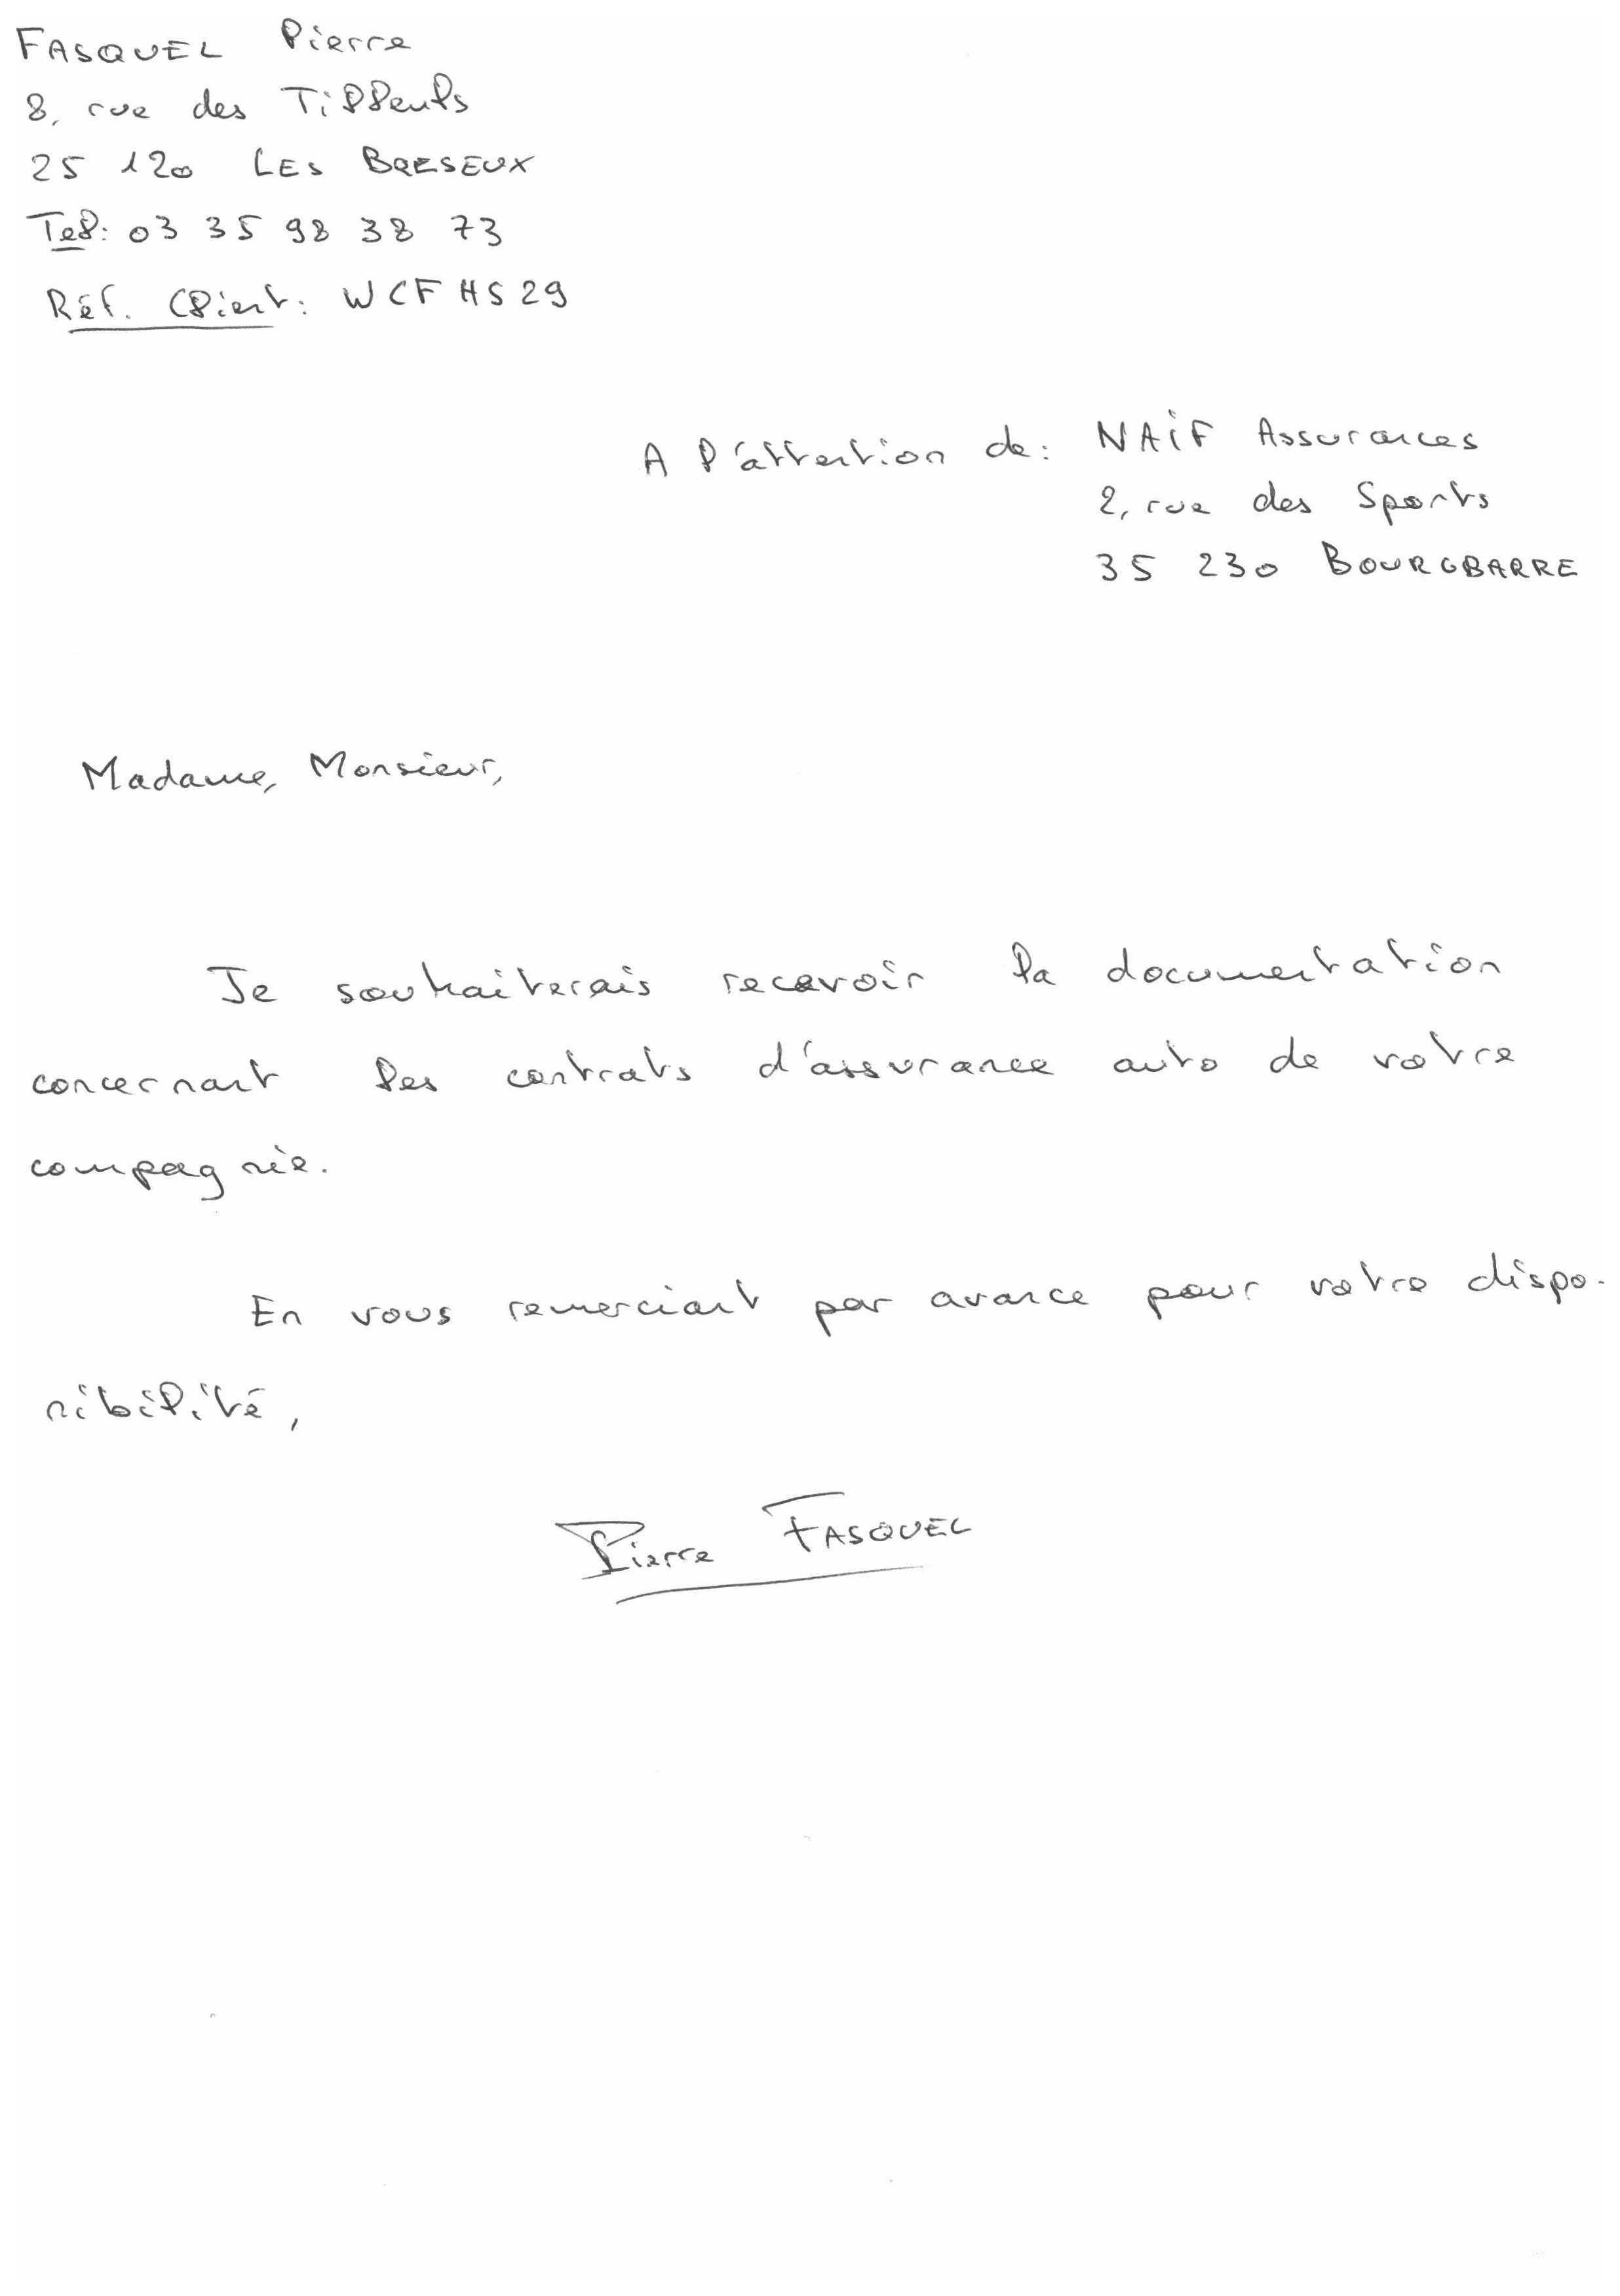 FASQUEL Pierre
8, rue des Tilleuls
25 120 LES BRESEUX
Tel: 03 35 98 38 73
Réf. Client: WCFHS29
A l'attention de: NAIF Assurances
2, rue des Sports
35 230 BOURGBARRE
Madame, Monsieur,
Je souhaiterais recevoir la documentation
concernant les contrats d'assurance auto de votre
compagnie.
En vous remerciant par avance pour votre dispo-
nibilité,
Pierre FASQUEL